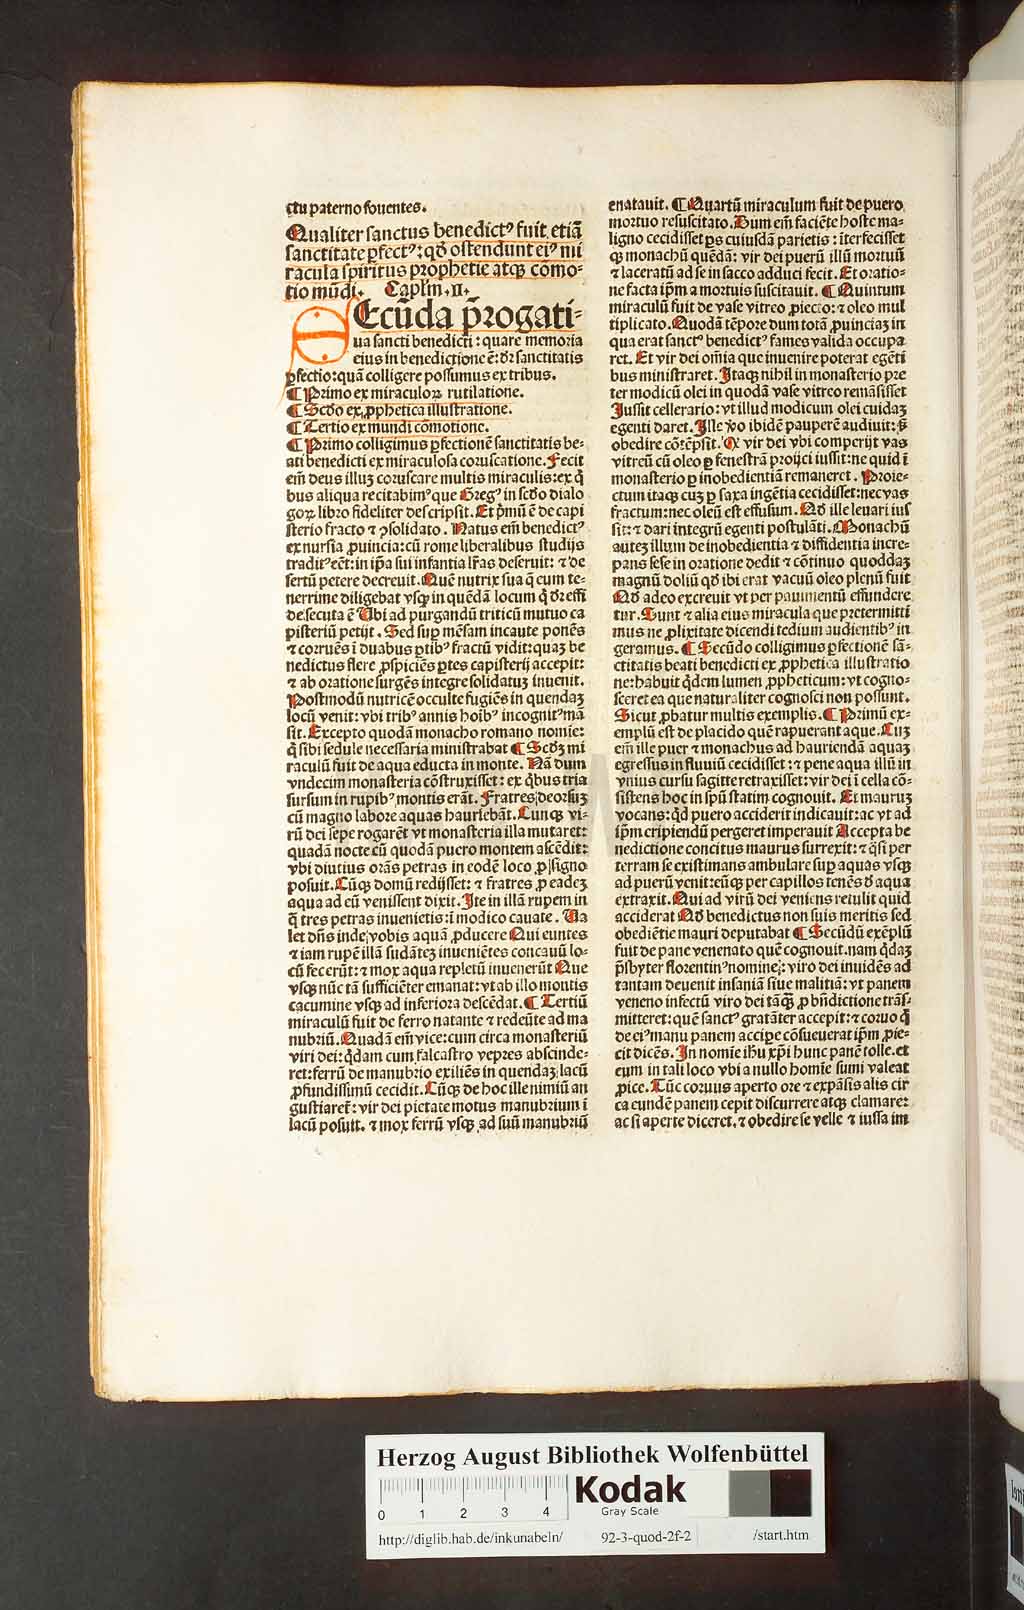 ctu paterno fouentes.
Qualiter sanctus benedictꝰ fuit etiā
sanctitate ꝑfectꝰ: qđ ostendunt eiꝰ mi
racula spiritus prophetie atqꝫ cōmo-
tio mūdi. Caplm .II.
SEcūda p̄rogati-
ua sancti benedicti: quare memoria
eius in benedictione ē: dr̄ sanctitatis
ꝑfectio: quā colligere possumus ex tribus.
¶ Primo ex miraculoꝝ rutilatione.
¶ Scđo ex ꝓphetica illustratione.
¶ Tertio ex mundi cōmotione.
¶ Primo colligimus ꝑfectionē sanctitatis be-
ati benedicti ex miraculosa coruscatione. Fecit
em̄ deus illuꝫ coruscare multis miraculis: ex q̄
bus aliqua recitabimꝰ que Gregꝰ in scđo dialo
goꝝ libro fideliter descripsit. Et p̄mū ē de capi
sterio fracto ⁊ ꝯsolidato. Natus em̄ benedictꝰ
ex nursia ꝓuincia: cū rome liberalibus studijs
traditꝰ eēt: in ip̄a sui infantia lr̄as deseruit: ⁊ de
sertū petere decreuit. Quē nutrix sua q̄ eum te-
nerrime diligebat vsqꝫ in quēdā locum q̄ dr̄ effi
de secuta ē Ubi ad purgandū triticū mutuo ca
pisteriū petijt. Sed suꝑ mēsam incaute ponēs
⁊ corruēs ī duabus ꝑtibꝰ fractū vidit: quaꝫ be
nedictus flere ꝓspiciēs ꝑtes capisterij accepit:
⁊ ab oratione surgēs integre solidatuꝫ inuenit.
Postmodū nutricē occulte fugiēs in quendaꝫ
locū venit: vbi tribꝰ annis hoībꝰ incognitꝰ mā
sit. Excepto quodā monacho romano nomīe:
q̄ sibi sedule necessaria ministrabat ¶ Scđꝫ mi
raculū fuit de aqua educta in monte. Nā dum
vndecim monasteria cōstruxisset: ex q̄bus tria
sursum in rupibꝰ montis erāt. Fratres deorsuꝫ
cū magno labore aquas hauriebāt. Cunqꝫ vi-
rū dei sepe rogarēt vt monasteria illa mutaret:
quadā nocte cū quodā puero montem ascēdit:
vbi diutius orās petras in eodē loco ꝓ signo
posuit. Cūqꝫ domū redijsset: ⁊ fratres ꝓ eadeꝫ
aqua ad eū venissent dixit. Ite in illā rupem in
q̄ tres petras inuenietis: ī modico cauate. Ua
let dn̄s inde vobis aquā ꝓducere Qui euntes
⁊ iam rupē illā sudāteꝫ inueniētes concauū lo-
cū fecerūt: ⁊ mox aqua repletū inuenerūt Que
vsqꝫ nūc tā sufficiēter emanat: vt ab illo montis
cacumine vsqꝫ ad inferiora descēdat. ¶ Tertiū
miraculū fuit de ferro natante ⁊ redeūte ad ma
nubriū. Quadā em̄ vice: cum circa monasteriū
viri dei: q̄dam cum falcastro vepres abscinde-
ret: ferrū de manubrio exiliēs in quendaꝫ lacū
ꝓfundissimū cecidit. Cūqꝫ de hoc ille nimiū an
gustiaret̄: vir dei pietate motus manubrium ī
lacū posuit. ⁊ mox ferrū vsqꝫ ad suū manubriū
enatauit. ¶ Quartū miraculum fuit de puero
mortuo resuscitato. Dum em̄ faciēte hoste ma-
ligno cecidisset ꝑs cuiusdā parietis: īterfecisset
qꝫ monachū quēdā: vir dei puerū illū mortuū
⁊ laceratū ad se in sacco adduci fecit. Et oratio-
ne facta ip̄m a mortuis suscitauit. ¶ Quintum
miraculū fuit de vase vitreo ꝓiecto: ⁊ oleo mul
tiplicato. Quodā tēpore dum totā ꝓuinciaꝫ in
qua erat sanctꝰ benedictꝰ fames valida occupa
ret. Et vir dei om̄ia que inuenire poterat egēti
bus ministraret. Itaqꝫ nihil in monasterio pre
ter modicū olei in quodā vase vitreo remāsisset
Jussit cellerario: vt illud modicum olei cuidaꝫ
egenti daret. Ille v̄o ibidē pauperē audiuit: s̄
obedire cōtēpsit. Qꝛ vir dei vbi comperijt vas
vitreū cū oleo ꝑ fenestrā proijci iussit: ne quid ī
monasterio ꝑ inobedientiā remaneret. Proie-
ctum itaqꝫ cuꝫ ꝑ saxa ingētia cecidisset: nec vas
fractum: nec oleū est effusum. Qđ ille leuari ius
sit: ⁊ dari integrū egenti postulāti. Monachū
auteꝫ illum de inobedientia ⁊ diffidentia incre-
pans sese in oratione dedit ⁊ cōtinuo quoddaꝫ
magnū doliū qđ ibi erat vacuū oleo plenū fuit
Qđ adeo excreuit vt per pauimentū effundere
tur. Sunt ⁊ alia eius miracula que pretermitti
mus ne ꝓlixitate dicendi tedium audientibꝰ in
geramus. ¶ Secūdo colligimus ꝑfectionē sā-
ctitatis beati benedicti ex ꝓphetica illustratio
ne: habuit q̄dem lumen ꝓpheticum: vt cogno-
sceret ea que naturaliter cognosci non possunt.
Sicut ꝓbatur multis exemplis. ¶ Primū ex-
emplū est de placido quē rapuerant aque. Cuꝫ
em̄ ille puer ⁊ monachus ad hauriendā aquaꝫ
egressus in fluuiū cecidisset: ⁊ pene aqua illū in
vnius cursu sagitte retraxisset: vir dei ī cella cō-
sistens hoc in sp̄u statim cognouit. Et mauruꝫ
vocans: q̄d puero acciderit indicauit: ac vt ad
ip̄m eripiendū pergeret imperauit Accepta be
nedictione concitus maurus surrexit: ⁊ q̄si per
terram se existimans ambulare suꝑ aquas vsqꝫ
ad puerū venit: eūqꝫ per capillos tenēs đ aqua
extraxit. Qui ad virū dei veniens retulit quid
acciderat Qđ benedictus non suis meritis sed
obediētie mauri deputabat ¶ Secūdū exēplū
fuit de pane venenato quē cognouit. nam q̄daꝫ
p̄sbyter florentinꝰ nomine: viro dei inuidēs ad
tantam deuenit insaniā siue malitiā: vt panem
veneno infectū viro dei tāqꝫ ꝓ bn̄dictione trās-
mitteret: quē sanctꝰ gratāter accepit: ⁊ coruo q̄
de eiꝰ manu panem accipe cōsueuerat ip̄m ꝓie-
cit dicēs. In nomīe ih̄u xp̄i hunc panē tolle. et
eum in tali loco vbi a nullo homīe sumi valeat
ꝓice. Tūc coruus aperto ore ⁊ expāsis alis cir
ca eundē panem cepit discurrere atqꝫ clamare:
ac si aperte diceret. ⁊ obedire se velle ⁊ iussa im
Herzog August Bibliothek Wolfenbüttel
0 1 2 3 4
Kodak
Gray Scale
http://diglib.hab.de/inkunabeln/ 92-3-quod-2f-2 /start.htm